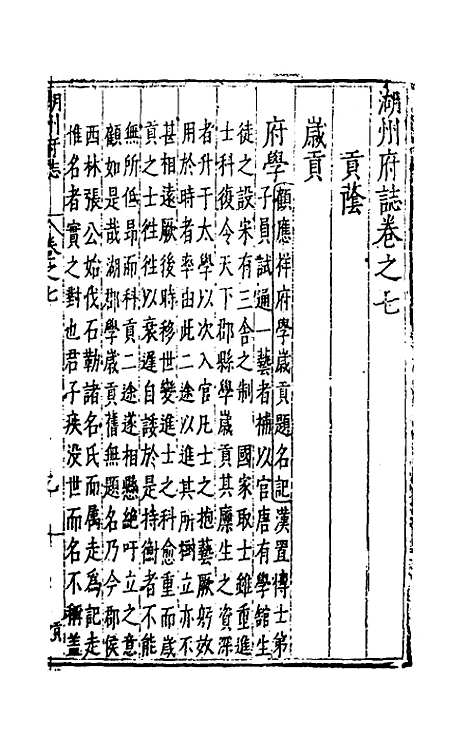 湖州府誌卷之七
貢蔭
歲貢
府學
顧應祥府學歲貢題名記漢置博士弟
子員試通一藝者補以官唐有學館生
徒之設宋有三舍之制　國家取士雖重進
士科復令天下郡縣學歲貢其廩生之資深
者升于太學以次入官凡士之抱藝厥躬效
用於時者率由此二途以進其所樹立亦不
甚相遠厥後時移世變進士之科愈重而歲
貢之士往往以衰遲自諉於是持衡者不能
無所低昂而科貢二途遂相懸絕吁立之意
顧如是哉湖郡學歲貢舊無題名乃今郡侯
西林張公始伐石勒諸名氏而属走為記走
惟名者實之對也君子疾没世而名不稱蓋
湖州府志
卷之七